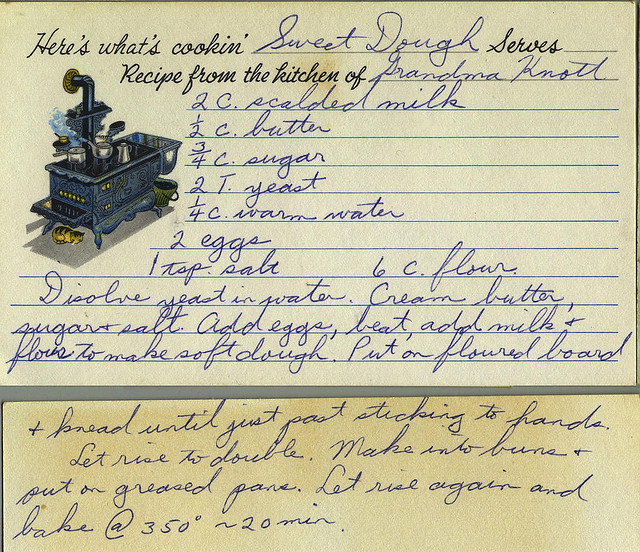 Here's what's cookin' Sweet Dough Serves
Recipe from the kitchen of Grandma Knott
2 c. scalded milk
1/2 c. butter
3/4 c. sugar
2 T. yeast
1/4 c. warm water
2 eggs
1 tsp. salt 6 c. flour.
Disolve yeast in water. Cream butter,
sugar + salt. Add eggs, beat, add milk +
flour to make soft dough. Put on floured board
+ knead until just past sticking to hands.
Let rise to double. Make into buns +
put on greased pans. Let rise again and
bake @ 350° ~20 min.